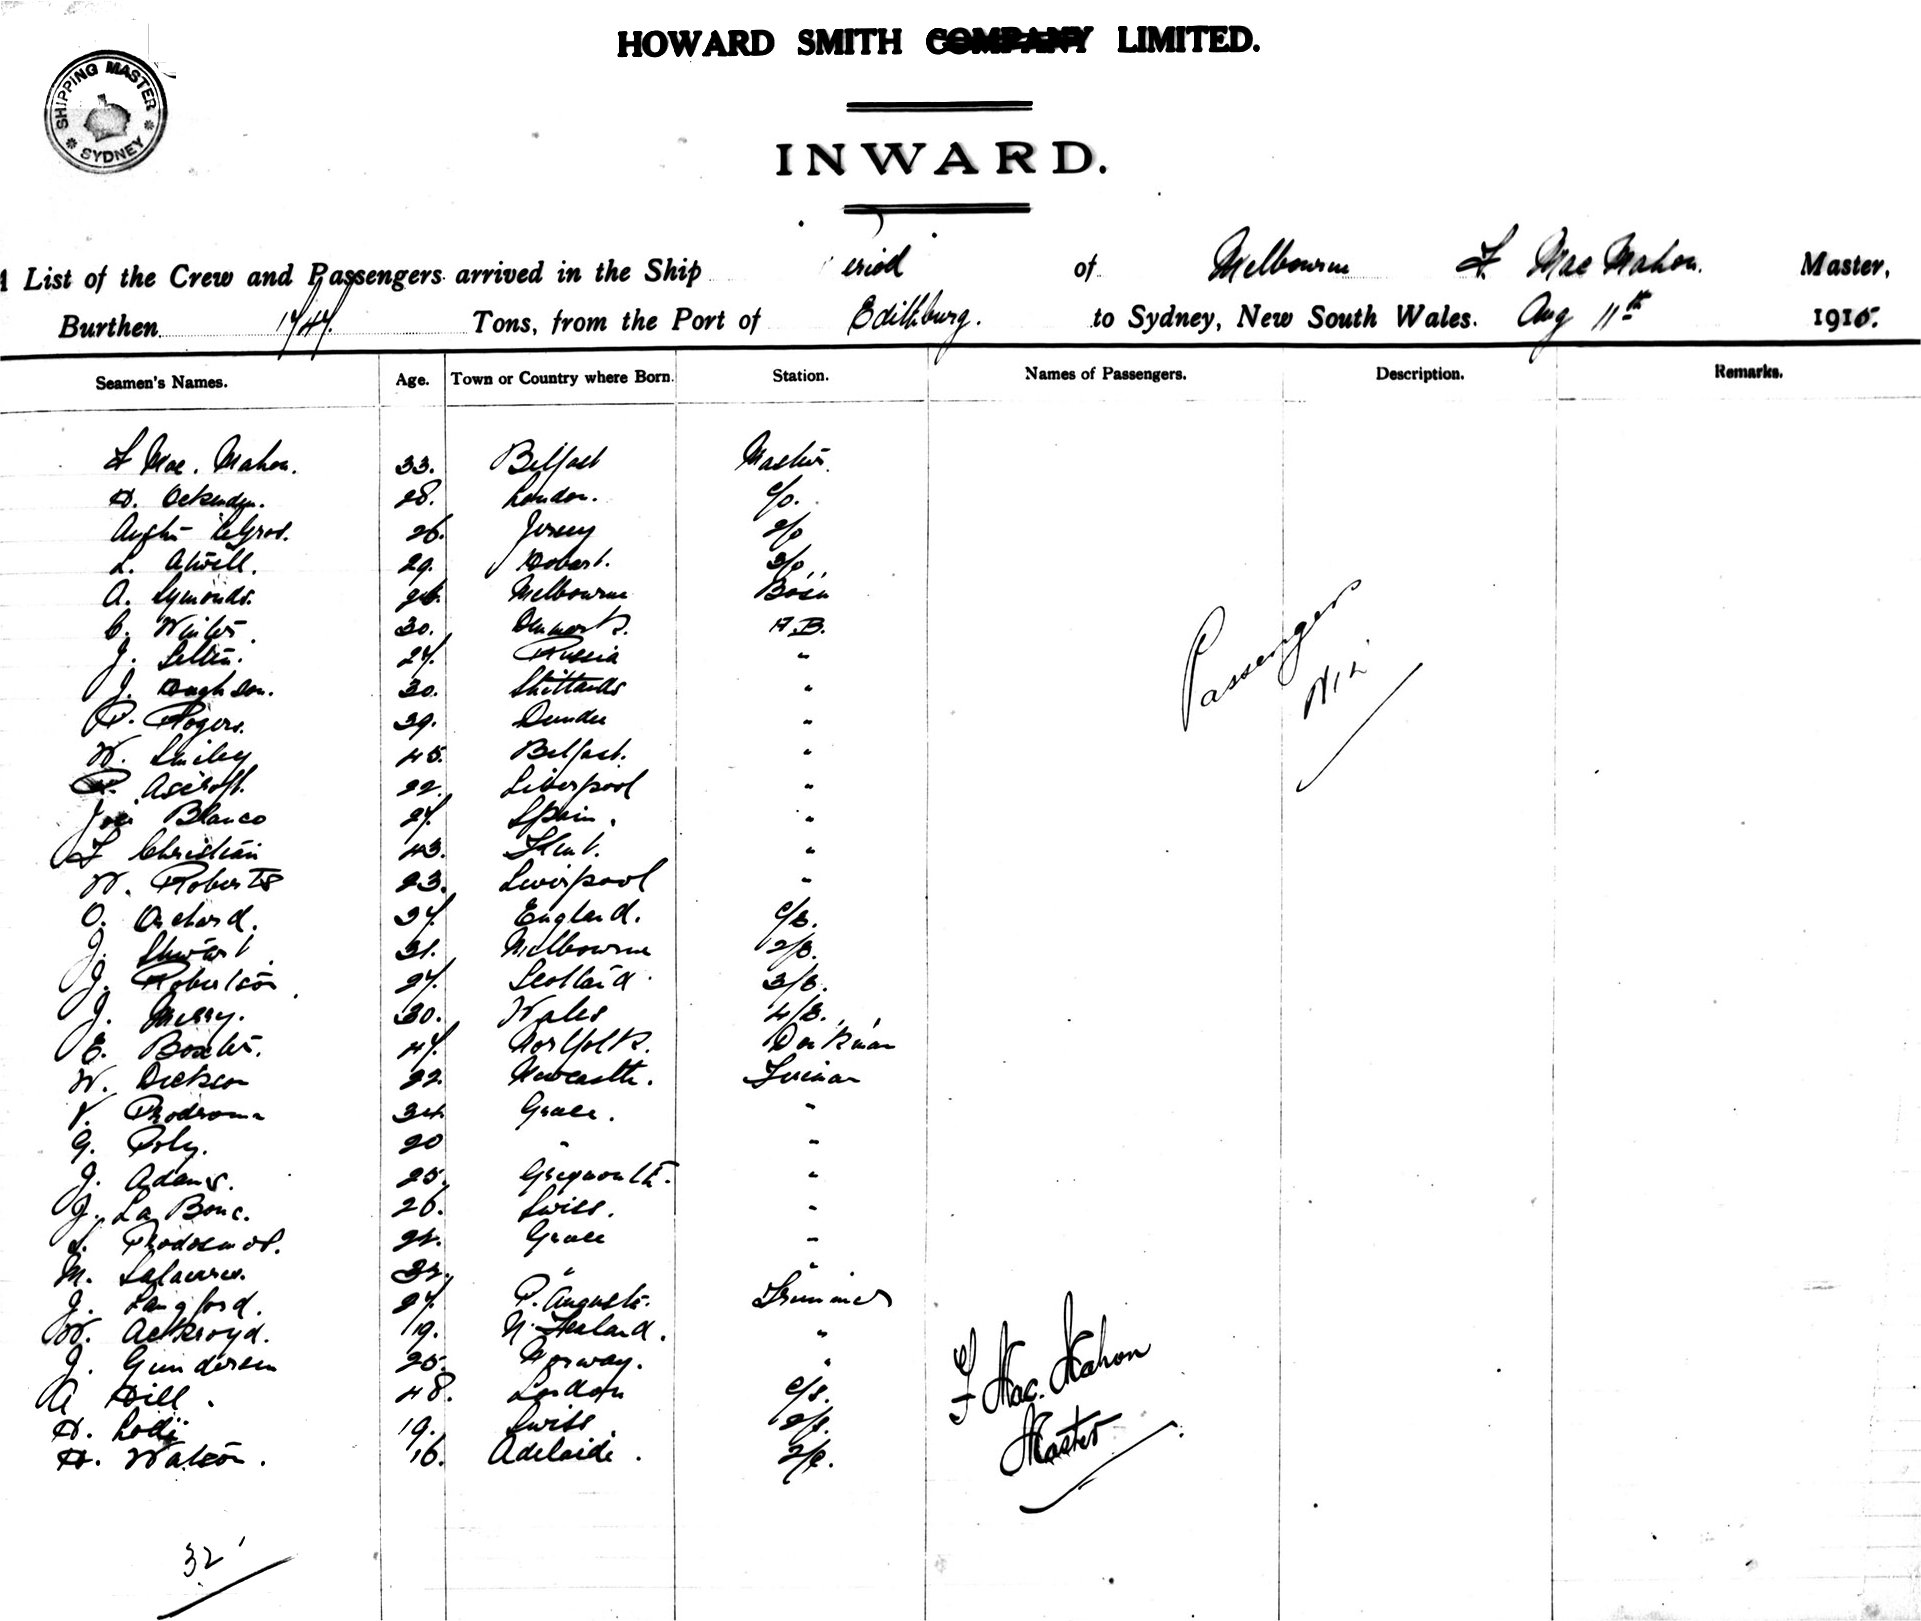 HOWARD SMITH COMPANY LIMITED.
SHIPPING MASTER SYDNEY
INWARD.
A List of the Crew and Passengers arrived in the Ship of Melbourne F. Mac Mahon. Master,
Burthen 1747. Tons, from the Port of Edithburg. to Sydney, New South Wales. Aug 11th 1915.
Seamen's Names. Age. Town or Country where Born. Station. Names of Passengers. Description. Remarks.
F Mac. Mahon. 33. Belfast Master.
H. Ockenden. 28. London. C/O.
26. Jersey 2/O
L. Atwell. 29. Hobart. 3/O
A. Symonds. Melbourne Bosn
C. Winter. 30. Denmark. A.B.
J. 27. Russia "
J. Hughson. 30. "
P. Rogers. 39. Dundee "
W. Smiley 45. Belfast. "
R. Ascroft. 22. Liverpool "
Jose Blanco 27. Spain. "
F Christian 43. Kent. "
W. Roberts 23. Liverpool "
O. Orchard. 37. England. C/E.
J. Stewart. 31. Melbourne 2/E.
J. Robertson 27. Scotland 3/E.
J. Merry. 30. Wales 4/E.
E. Baxter. 47. Norfolk. Donkman
W. Dickson 22. Newcastle. Fireman
34. Greece. "
G. Poly. 20 " "
J. Adams. 25. Greymouth. "
J. La Bonc. 26. Swiss. "
Greece "
M. " "
J. Langford. 27. P. Augusta. Trimmer
W. Ackroyd. 19. N. Zealand. "
J. Gundersen 25. Norway. "
A Hill. 48. London C/S.
H. 19. Swiss. 2/S.
H. Watson. 16. Adelaide.
Passengers
Nil
F Mac. Mahon
Master
32